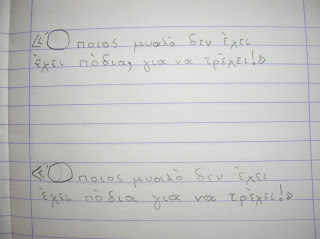 «Όποιος μυαλό δεν έχει
έχει πόδια, για να τρέχει!»
«Όποιος μυαλό δεν έχει
έχει πόδια για να τρέχει!»